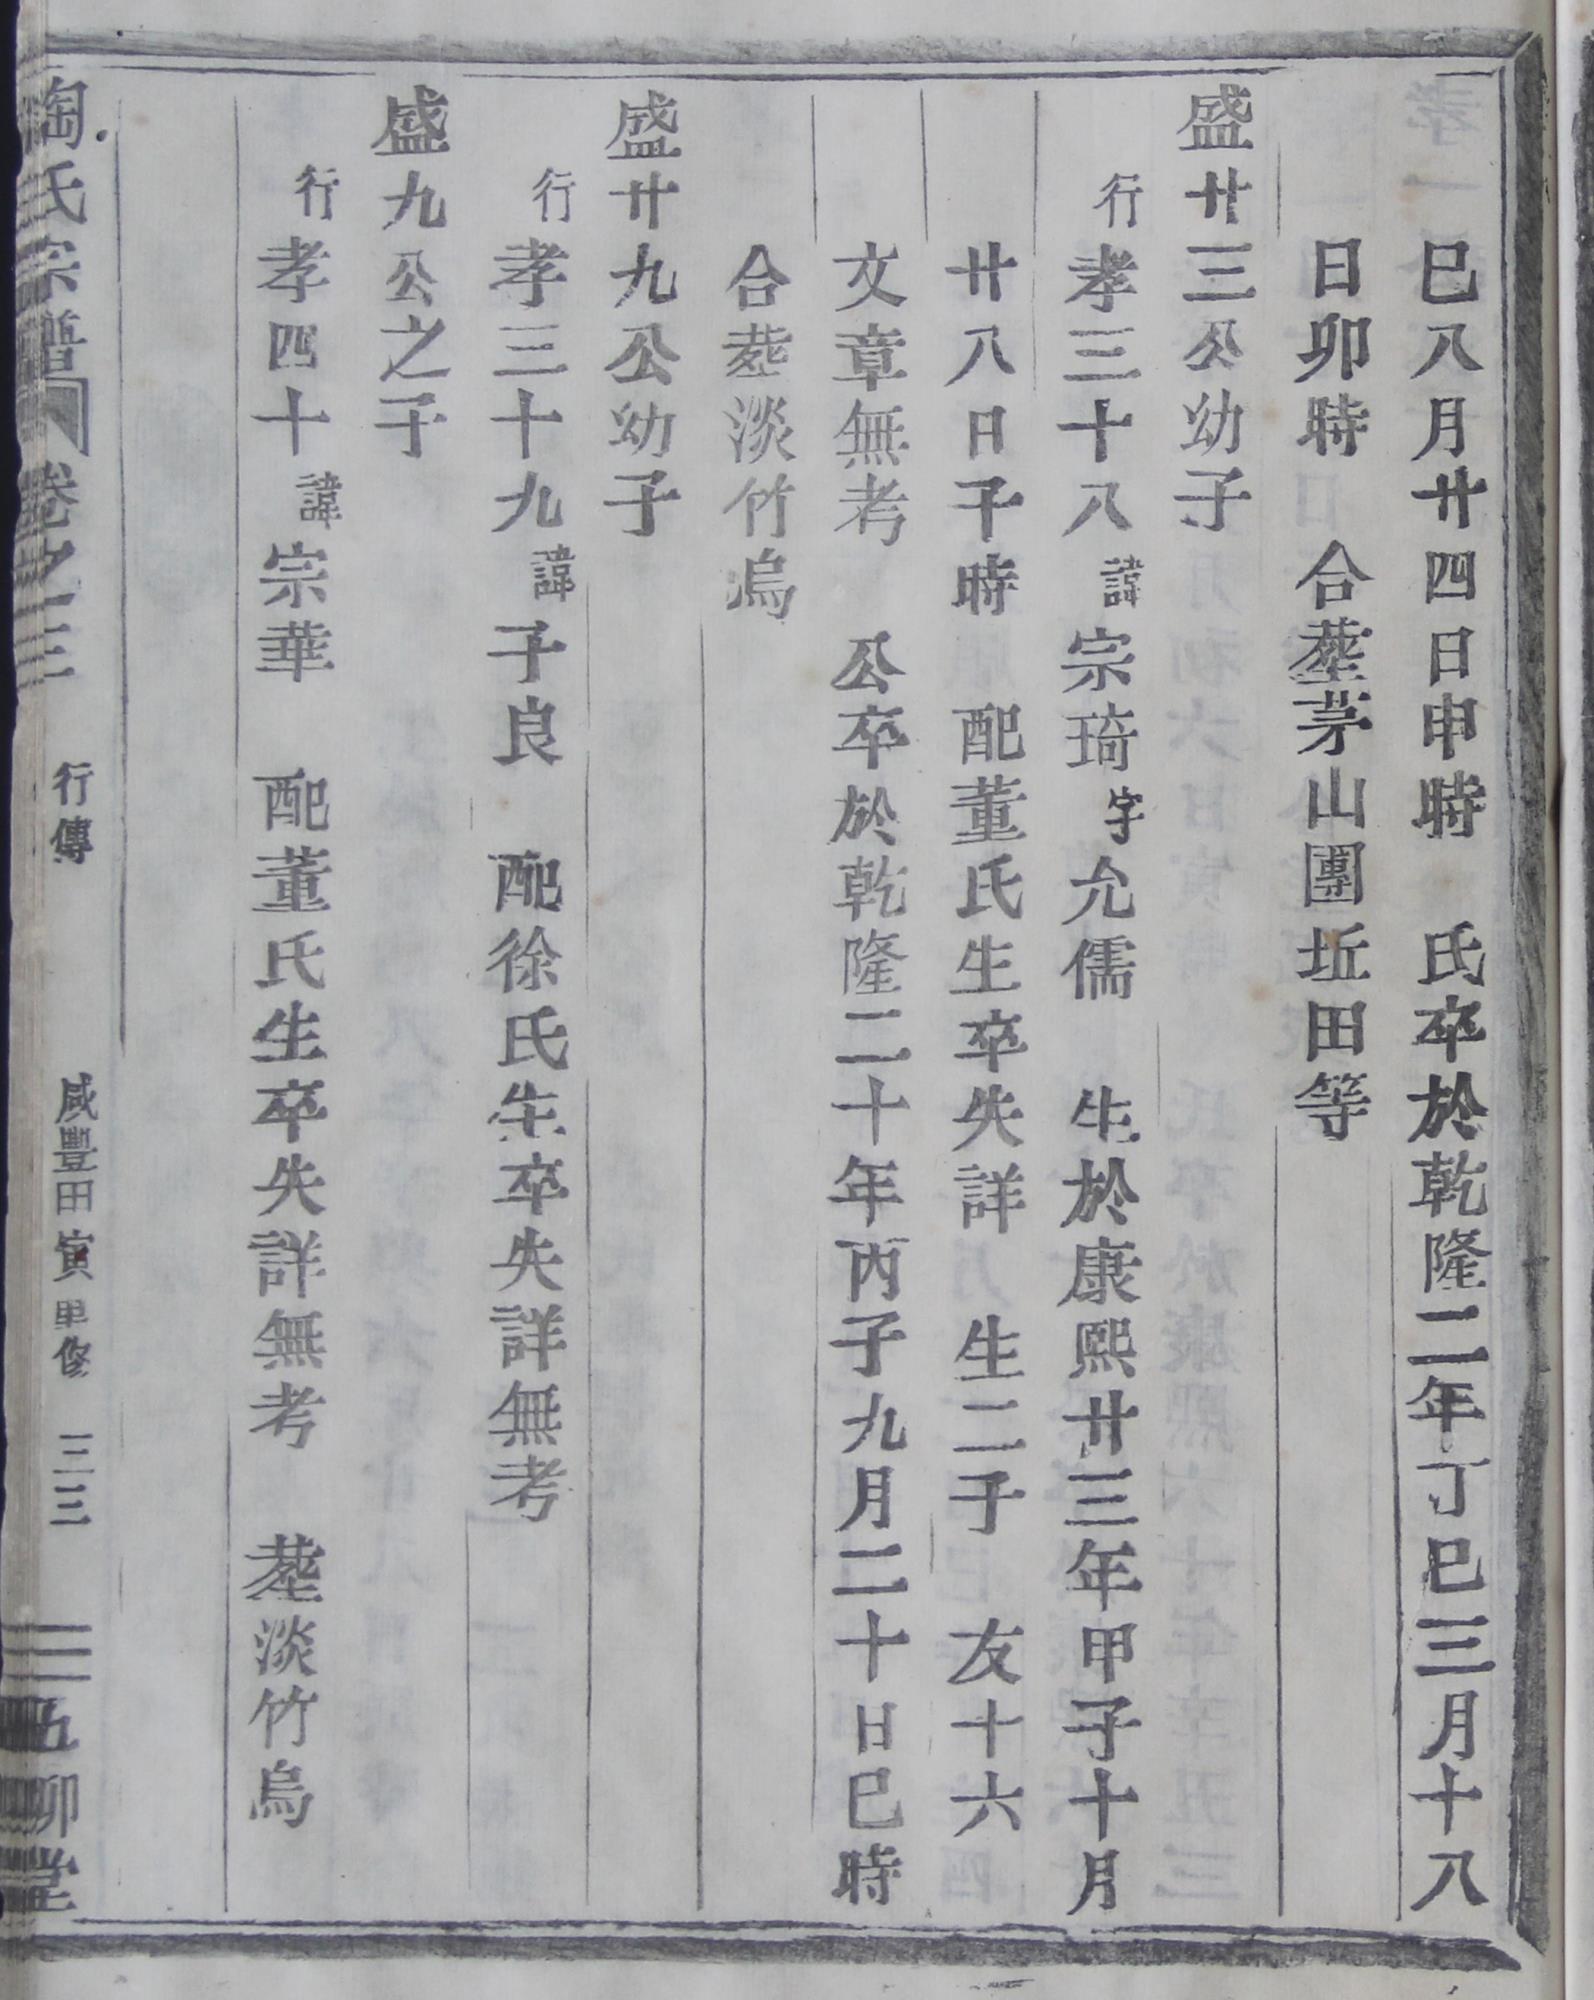 巳八月廿四日申時　氏卒於乾隆二年丁巳三月十八
日卯時　合塟茅山團坵田等
盛廿三公幼子
行孝三十八諱宗琦字允儒　生於康熙廿三年甲子十月
廿八日子時　配董氏生卒失詳　生二子　友十六
文章無考　公卒於乾隆二十年丙子九月二十日巳時
合塟淡竹塢
盛廿九公幼子
行孝三十九諱子良　配徐氏生卒失詳無考
盛九公之子
行孝四十諱宗華　配董氏生卒失詳無考　塟淡竹塢
陶氏宗譜　卷之三　行傳　咸豐甲寅重修　三三　五柳堂